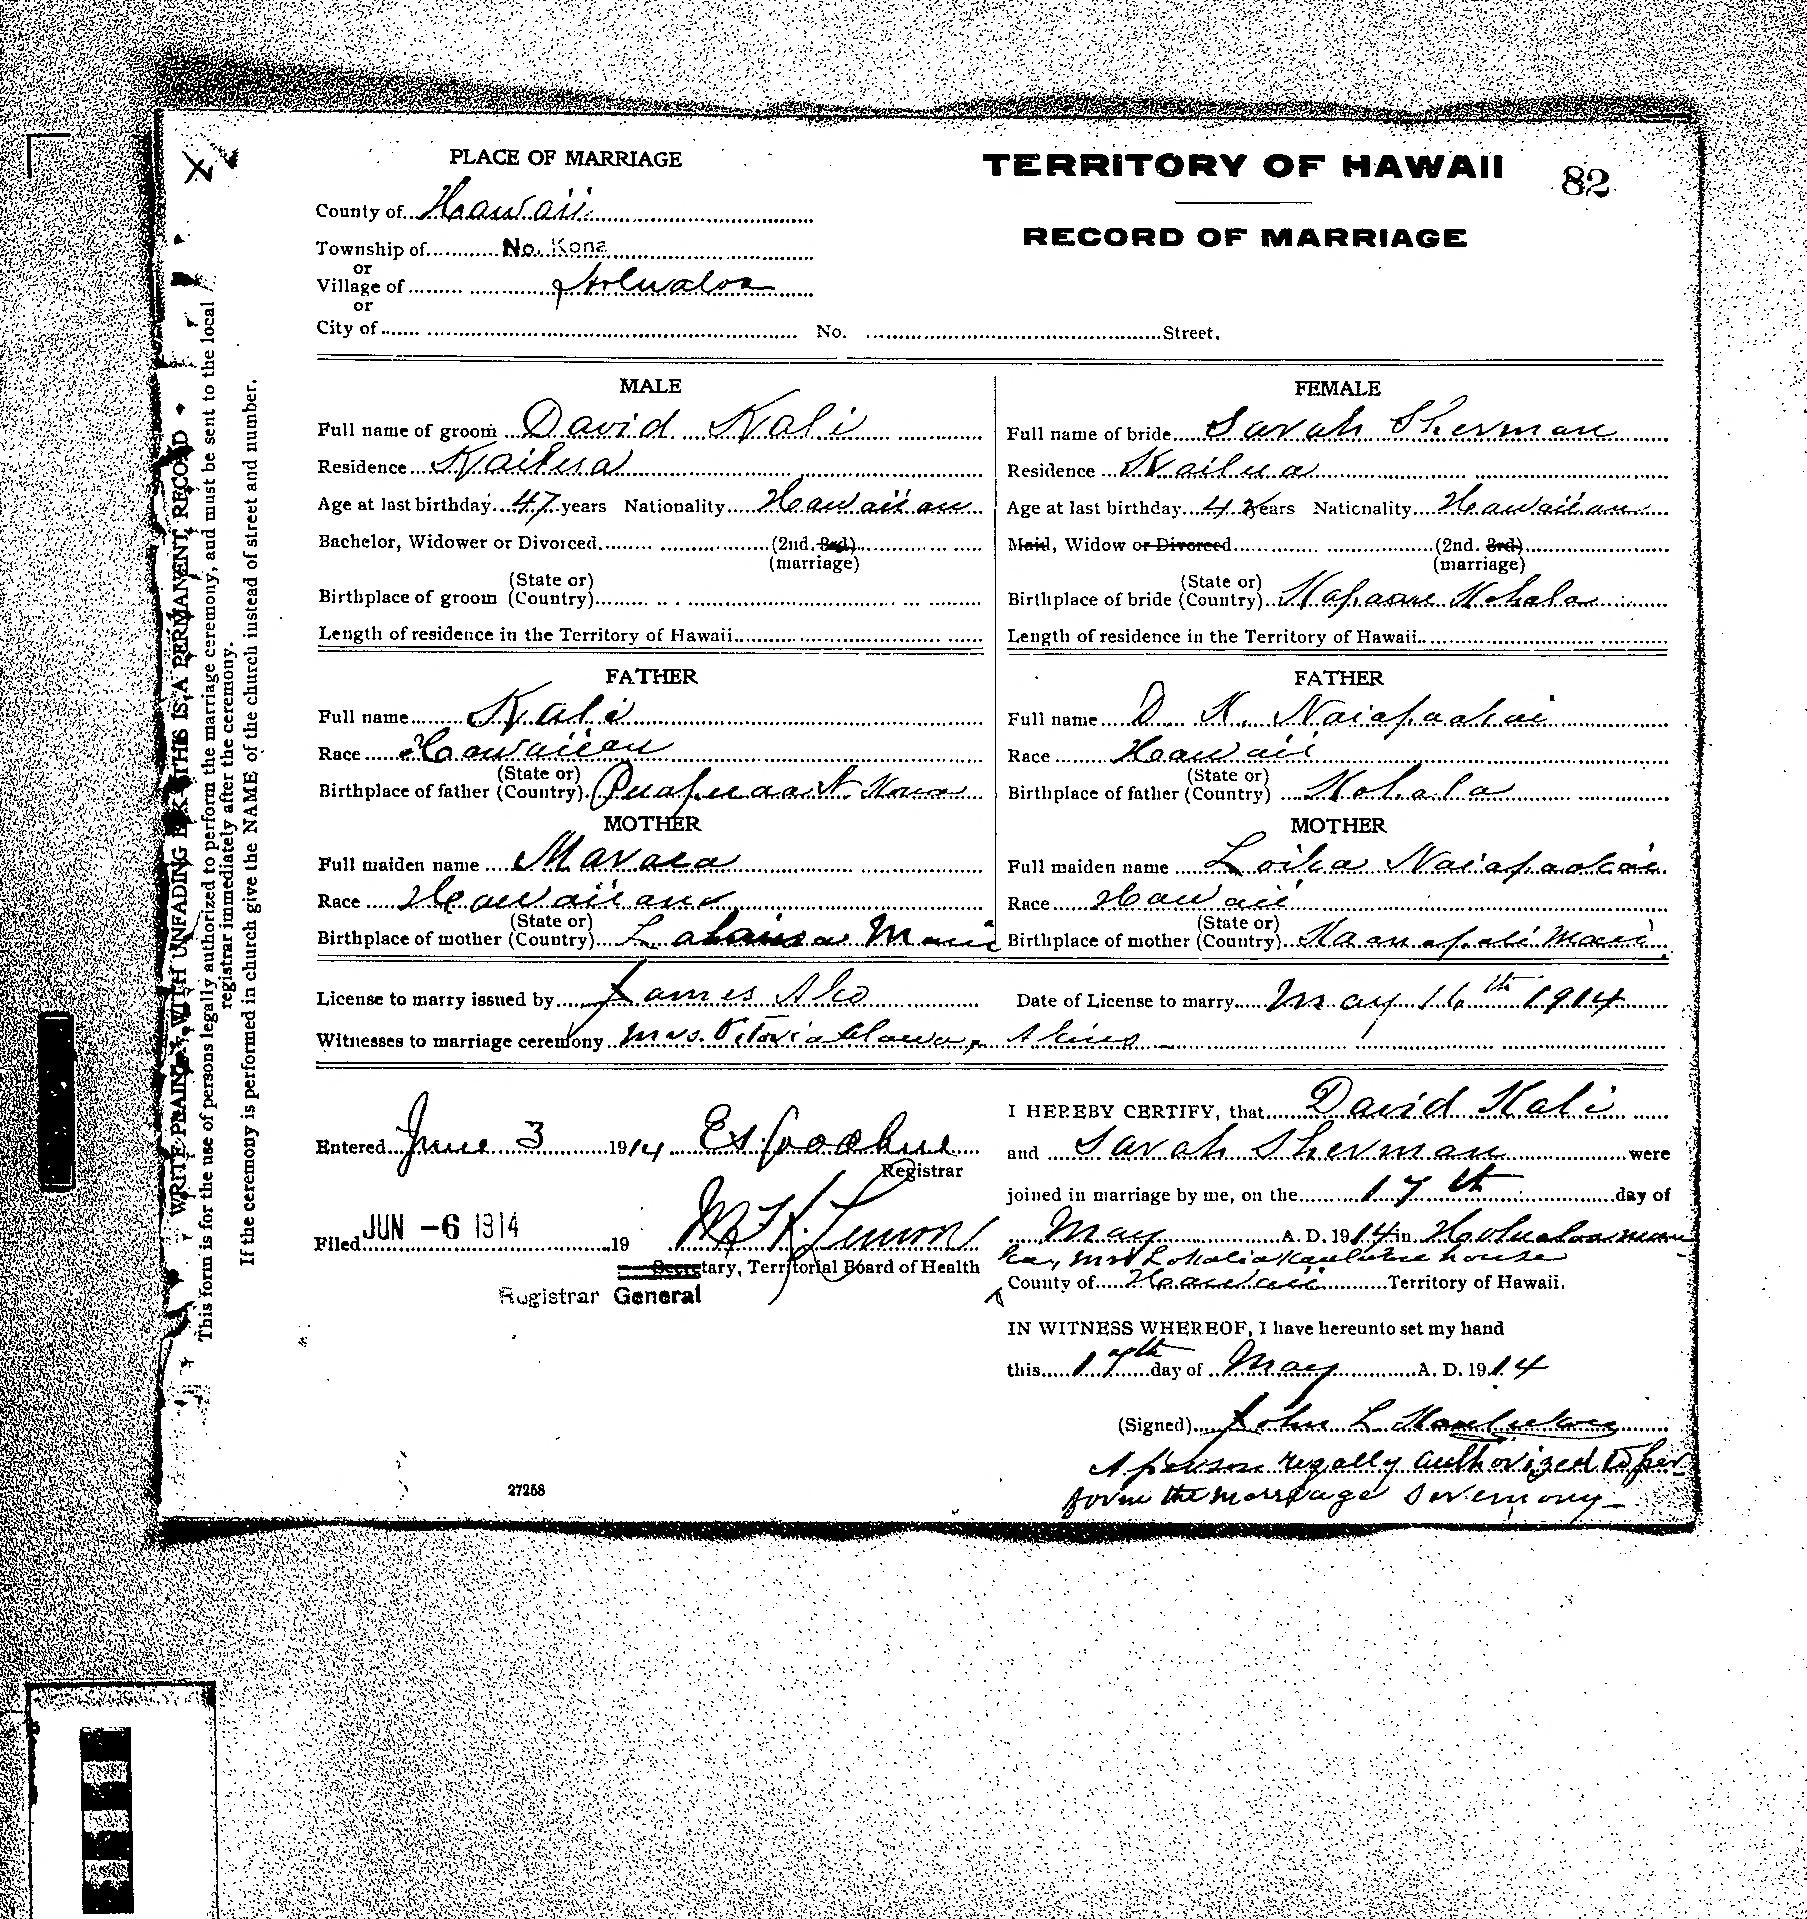 PLACE OF MARRIAGE
TERRITORY OF HAWAII
82
County of Hawaii
RECORD OF MARRIAGE
Township of No. Kona
or
Village of Holualoa
or
City of No. Street.
MALE
Full name of groom David Kali
Residence Kailua
Age at last birthday 47 years Nationality Hawaiian
Bachelor, Widower or Divorced (2nd. 3rd)
(marriage)
Birthplace of groom (State or) (Country)
Length of residence in the Territory of Hawaii
FEMALE
Full name of bride Sarah Sherman
Residence Kailua
Age at last birthday 42 years Nationality Hawaiian
Maid, Widow or Divorced (2nd. 3rd)
(marriage)
Birthplace of bride (State or) (Country) Kapaau Kohala
Length of residence in the Territory of Hawaii
FATHER
Full name Kali
Race Hawaiian
Birthplace of father (State or) (Country) Puapuaa N. Kona
MOTHER
Full maiden name
Race Hawaiian
Birthplace of mother (State or) (Country) Lahaina Maui
FATHER
Full name D. K. Naiapaakai
Race Hawaii
Birthplace of father (State or) (Country) Kohala
MOTHER
Full maiden name Loika Naiapaakai
Race Hawaii
Birthplace of mother (State or) (Country) Kaanapali Maui
License to marry issued by James Ako
Date of License to marry May 16th 1914
Witnesses to marriage ceremony Mrs.
Entered June 3 1914
Registrar
Filed JUN -6 1914 19
Secretary, Territorial Board of Health
Registrar General
27258
I HEREBY CERTIFY, that David Kali
and Sarah Sherman were
joined in marriage by me, on the 17th day of
May A. D. 1914 in Holualoa
house
County of Hawaii Territory of Hawaii.
IN WITNESS WHEREOF, I have hereunto set my hand
this 17th day of May A. D. 1914
(Signed) John L.
A person regally authorized to per-
form the marriage seremony
WRITE PLAINLY WITH UNFADING INK THIS IS A PERMANENT RECORD
This form is for the use of persons legally authorized to perform the marriage ceremony, and must be sent to the local
registrar immediately after the ceremony.
If the ceremony is performed in church give the NAME of the church instead of street and number.